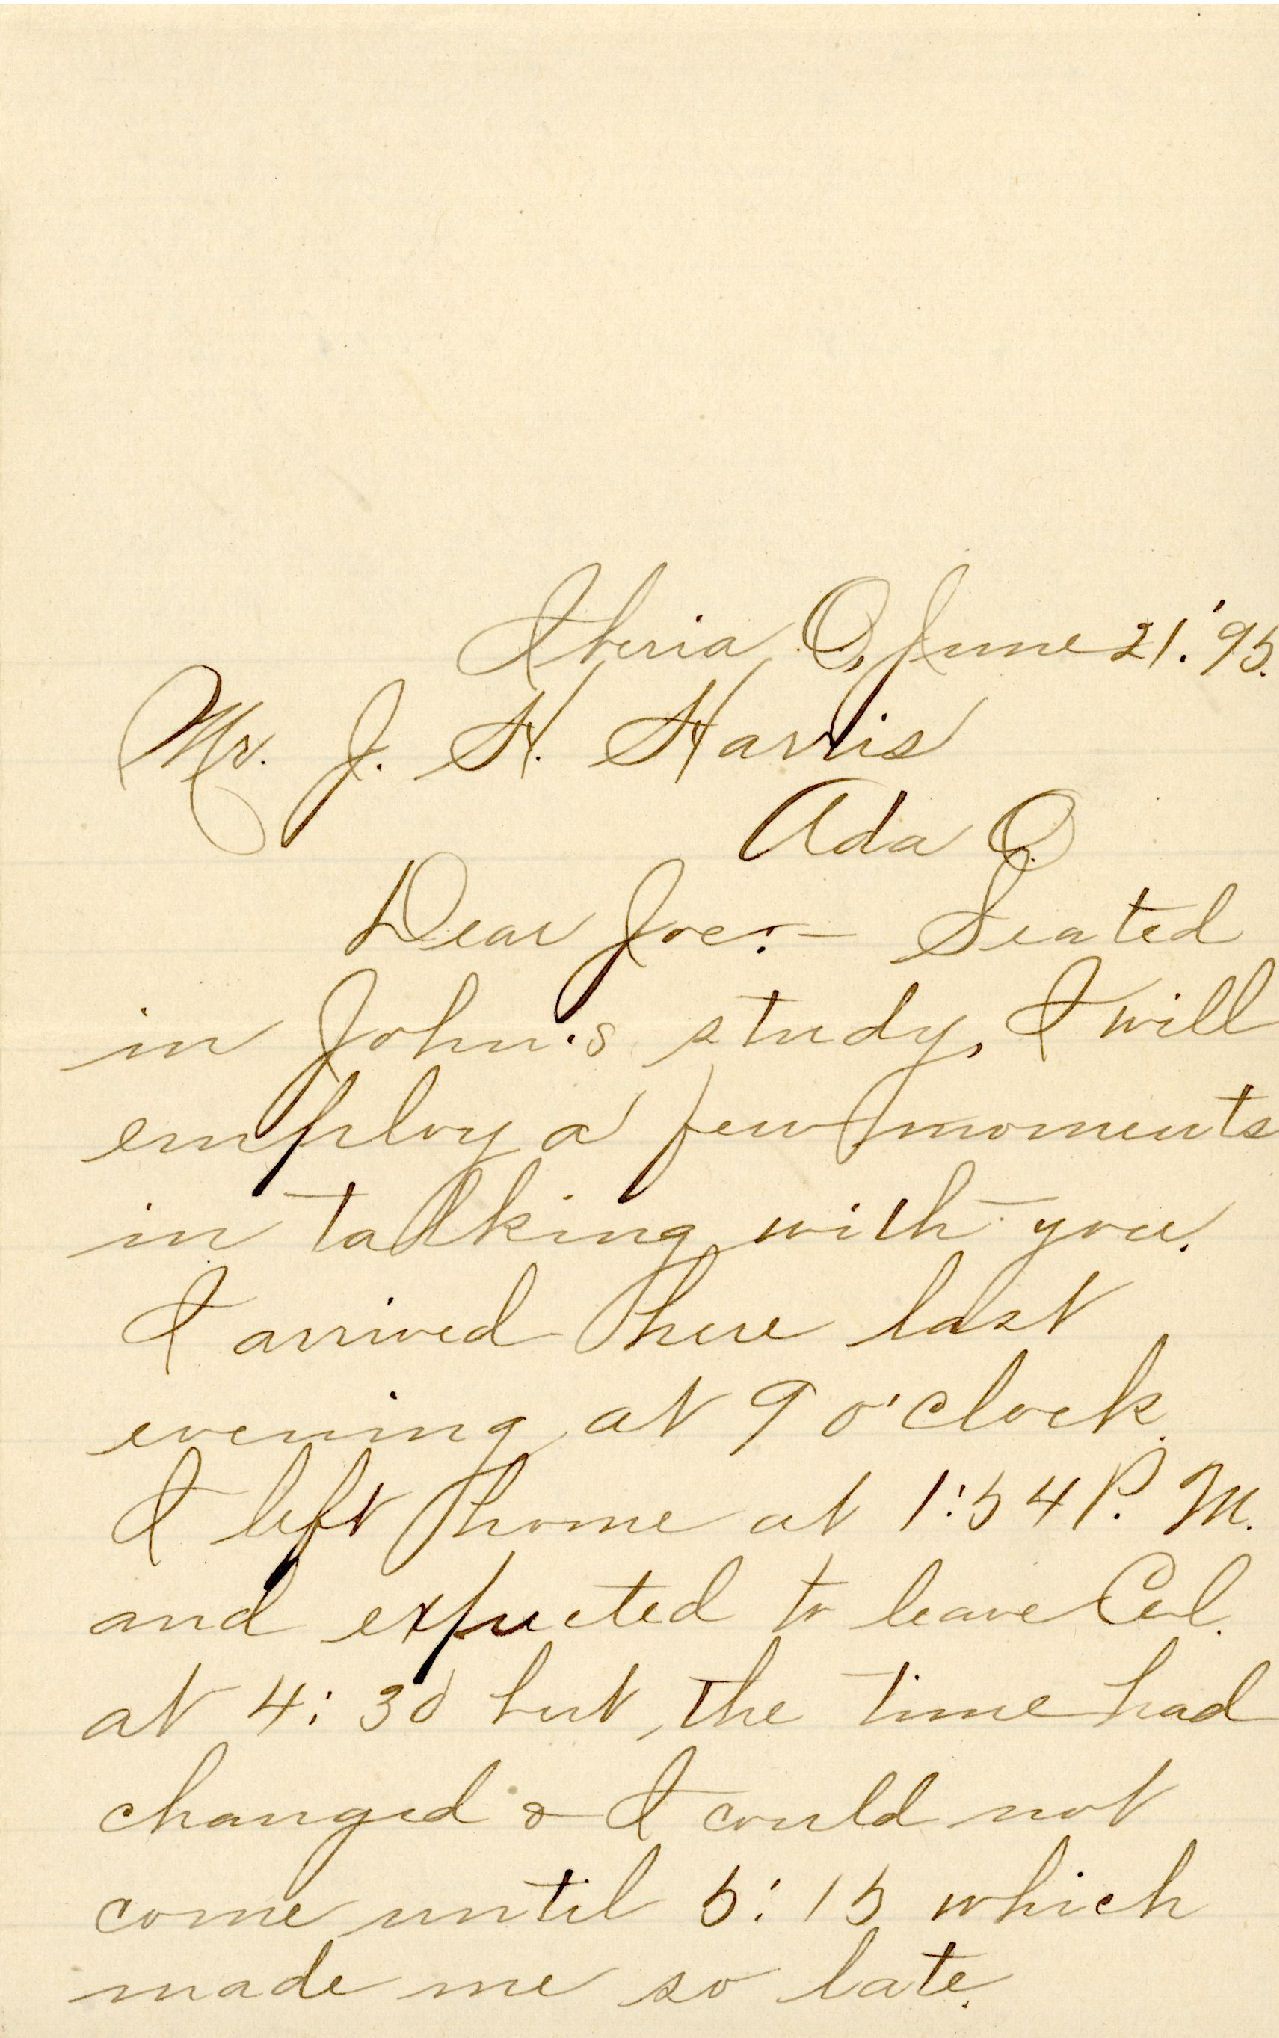 Iberia O, June 21. '95.
Mr. J. H. Harris
Ada O.
Dear Joe:— Seated
in John's study, I will
employ a few moments
in talking with you.
I arrived here last
evening at 9 o'clock.
I left home at 1:54 P. M.
and expected to leave Col.
at 4:30 but the time had
changed & I could not
come until 5:15 which
made me so late.